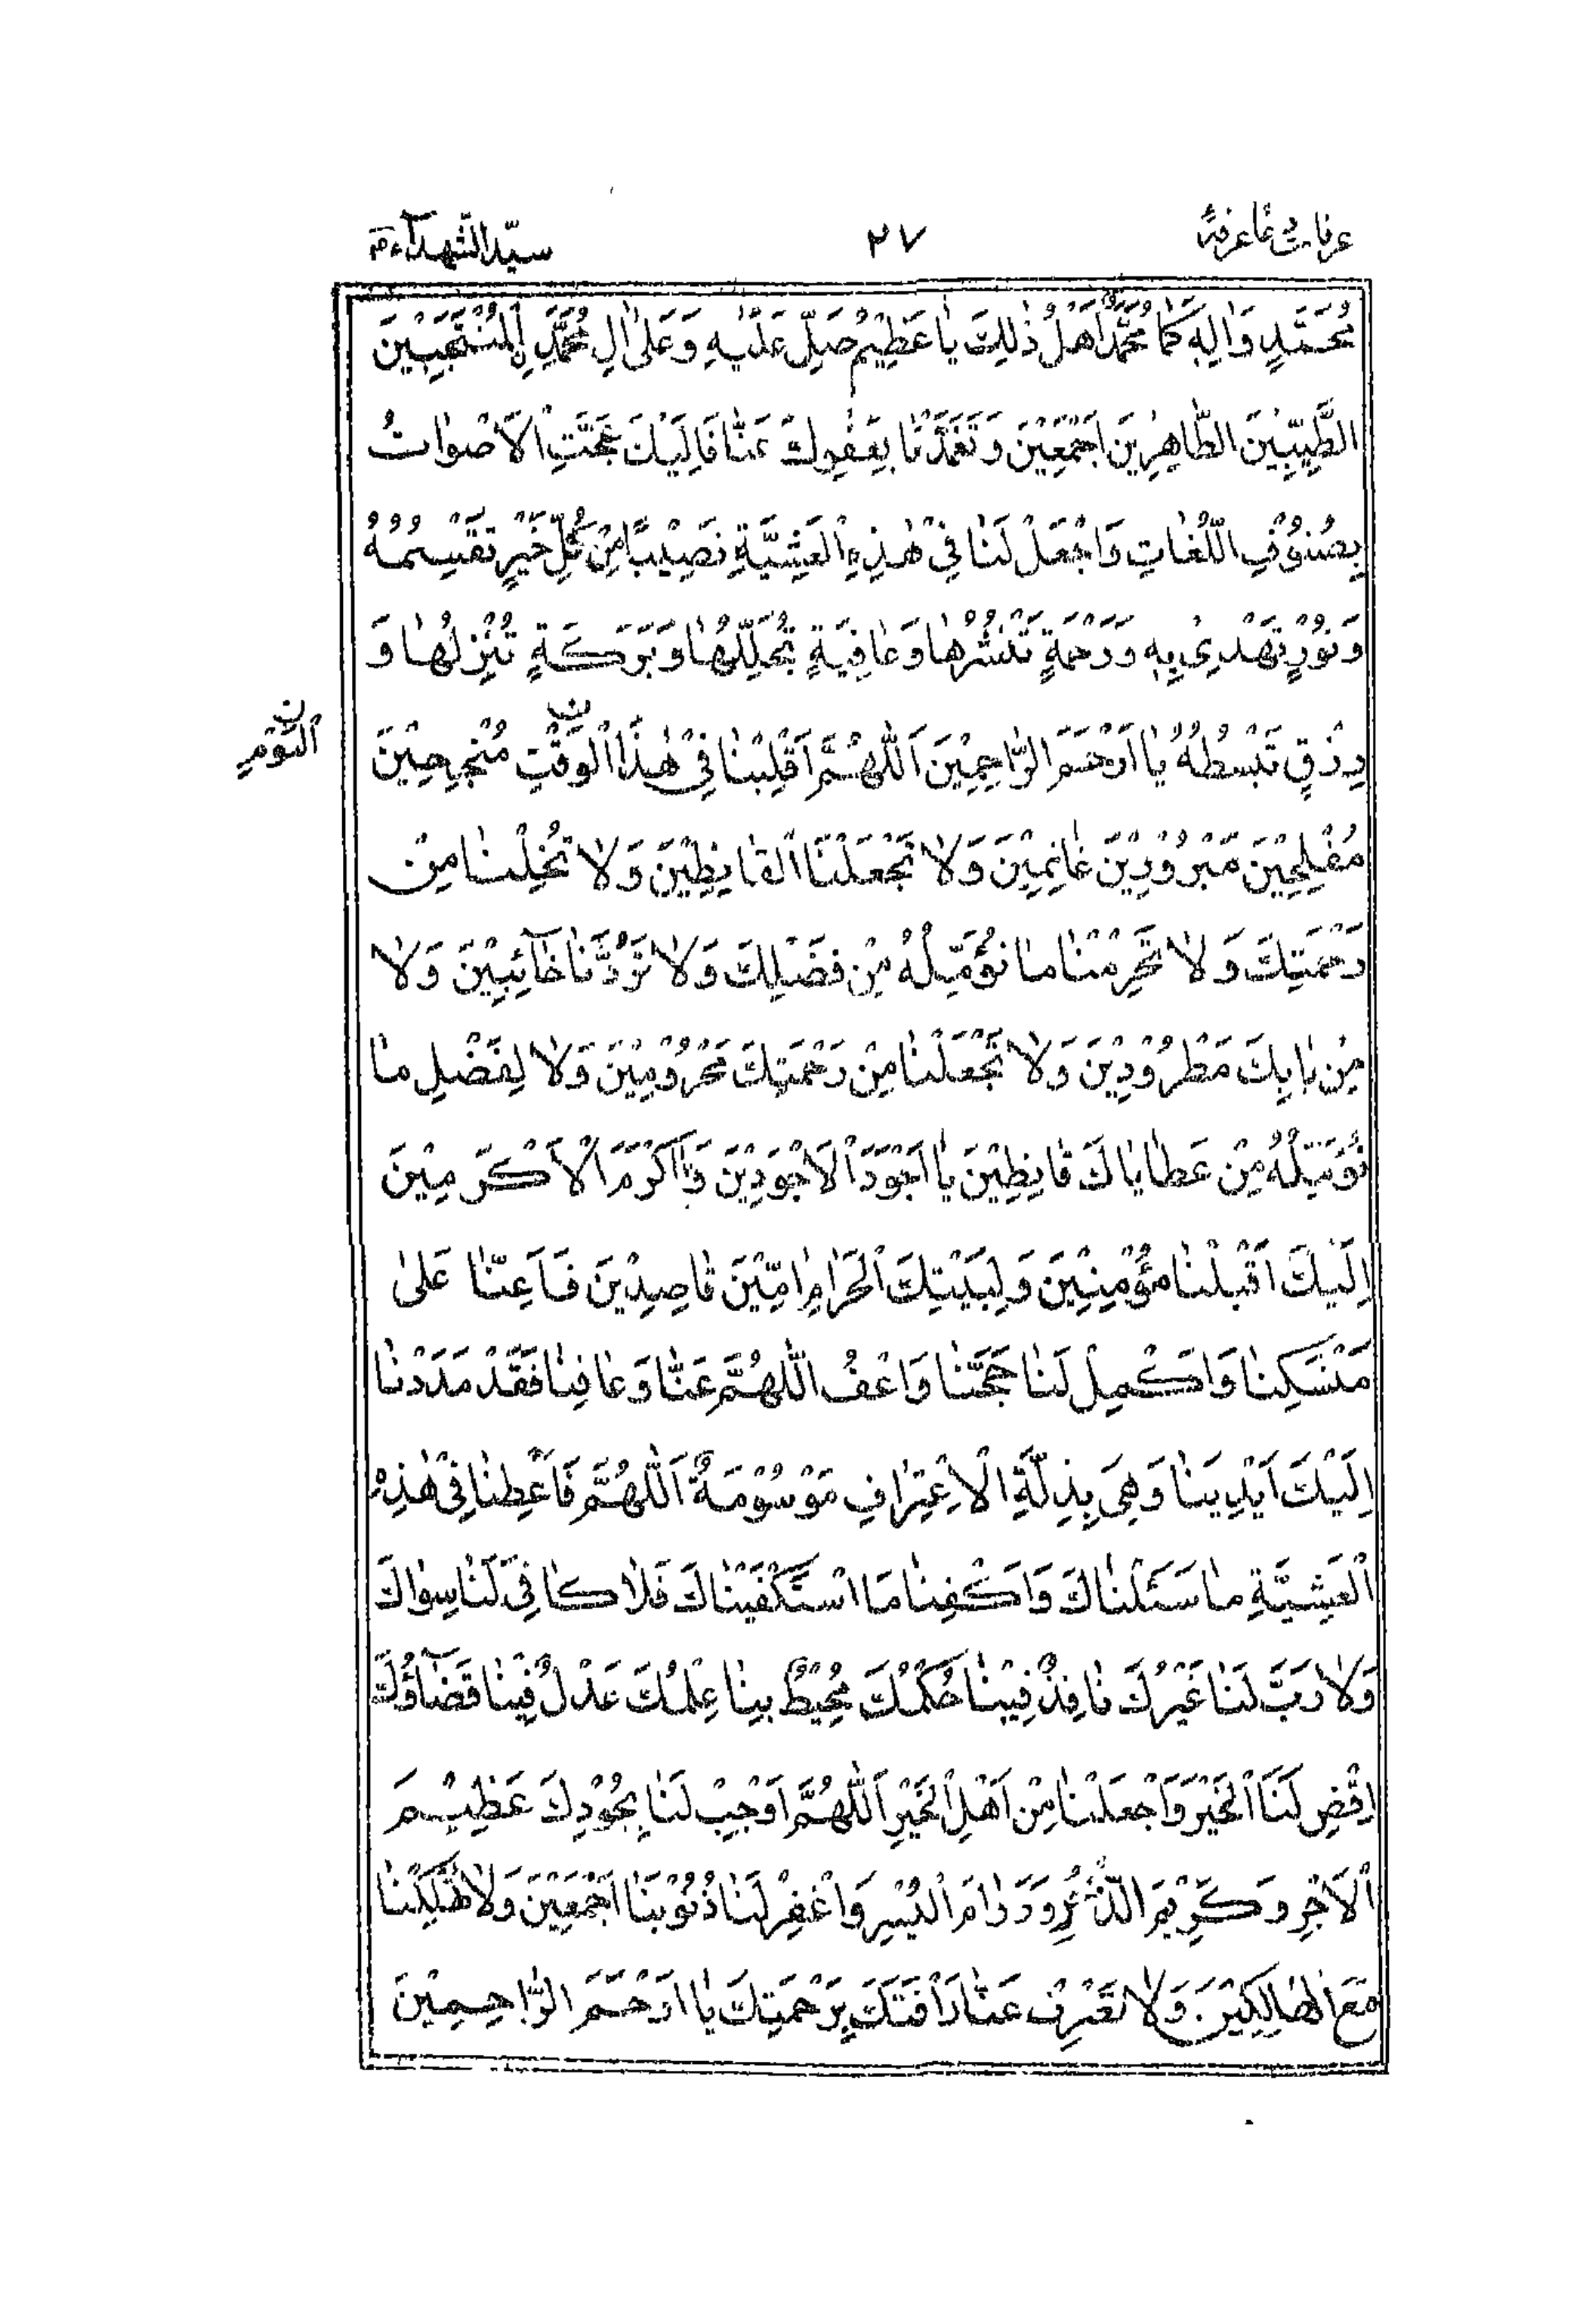 عرفات فی دعاء عرفة
۲۷
سیّد الشّهدآء ع
مُحَمَّدٍ وَاٰلِهٖ كَمٰا مُحَمَّدٌ اَهْلُ ذٰلِكَ يٰا عَظِيْمُ صَلِّ عَلَيْهِ وَعَلىٰ اٰلِ مُحَمَّدٍ الْمُنْتَجَبِيْنَ
الطَّيِّبِيْنَ الطّٰاهِرِيْنَ اَجْمَعِيْنَ وَتَغَمَّدْنٰا بِعَفْوِكَ عَنّٰا فَاِلَيْكَ عَجَّتِ الْاَصْوٰاتُ
بِصُنُوْفِ اللُّغٰاتِ وَاجْعَلْ لَنٰا فِيْ هٰذِهِ الْعَشِيَّةِ نَصِيْبًا مِنْ كُلِّ خَيْرٍ تَقْسِمُهُ
وَنُوْرٍ تَهْدِيْ بِهٖ وَرَحْمَةٍ تَنْشُرُهٰا وَعٰافِيَةٍ تُجَلِّلُهٰا وَبَرَكَةٍ تُنْزِلُهٰا وَ
رِزْقٍ تَبْسُطُهُ يٰا اَرْحَمَ الرّٰاحِمِيْنَ اَللّٰهُمَّ اَقْلِبْنٰا فِيْ هٰذَا الْوَقْتِ مُنْجِحِيْنَ
مُفْلِحِيْنَ مَبْرُوْرِيْنَ غٰانِمِيْنَ وَلاٰ تَجْعَلْنَا الْقٰانِطِيْنَ وَلاٰ تُخْلِنٰا مِنْ
رَحْمَتِكَ وَلاٰ تَحْرِمْنٰا مٰا نُؤَمِّلُهُ مِنْ فَضْلِكَ وَلاٰ تَرُدَّنٰا خٰآئِبِيْنَ وَلاٰ
مِنْ بٰابِكَ مَطْرُوْدِيْنَ وَلاٰ تَجْعَلْنٰا مِنْ رَحْمَتِكَ مَحْرُوْمِيْنَ وَلاٰ لِفَضْلِ مٰا
نُؤَمِّلُهُ مِنْ عَطٰايٰاكَ قٰانِطِيْنَ يٰا اَجْوَدَ الْاَجْوَدِيْنَ وَاَكْرَمَ الْاَكْرَمِيْنَ
اِلَيْكَ اَقْبَلْنٰا مُؤْمِنِيْنَ وَلِبَيْتِكَ الْحَرٰامِ اٰمِّيْنَ قٰاصِدِيْنَ فَاَعِنّٰا عَلىٰ
مَنْسَكِنٰا وَاَكْمِلْ لَنٰا حَجَّنٰا وَاعْفُ اللّٰهُمَّ عَنّٰا وَعٰافِنٰا فَقَدْ مَدَدْنٰا
اِلَيْكَ اَيْدِيَنٰا وَهِيَ بِذِلَّةِ الْاِعْتِرٰافِ مَوْسُوْمَةٌ اَللّٰهُمَّ فَاَعْطِنٰا فِيْ هٰذِهِ
الْعَشِيَّةِ مٰا سَئَلْنٰاكَ وَاكْفِنٰا مَا اسْتَكْفَيْنٰاكَ فَلاٰ كٰافِيَ لَنٰا سِوٰاكَ
وَلاٰ رَبَّ لَنٰا غَيْرُكَ نٰافِذٌ فِيْنٰا حُكْمُكَ مُحِيْطٌ بِنٰا عِلْمُكَ عَدْلٌ فِيْنٰا قَضٰآؤُكَ
اِقْضِ لَنَا الْخَيْرَ وَاجْعَلْنٰا مِنْ اَهْلِ الْخَيْرِ اَللّٰهُمَّ اَوْجِبْ لَنٰا بِجُوْدِكَ عَظِيْمَ
الْاَجْرِ وَكَرِيْمَ الذُّخْرِ وَدَوٰامَ الْيُسْرِ وَاغْفِرْ لَنٰا ذُنُوْبَنٰا اَجْمَعِيْنَ وَلاٰ تُهْلِكْنٰا
مَعَ الْهٰالِكِيْنَ وَلاٰ تَصْرِفْ عَنّٰا رَاْفَتَكَ بِرَحْمَتِكَ يٰا اَرْحَمَ الرّٰاحِمِيْنَ